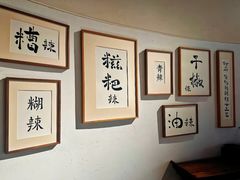 糟辣
糊辣
糍粑
辣
青辣
干椒
油辣